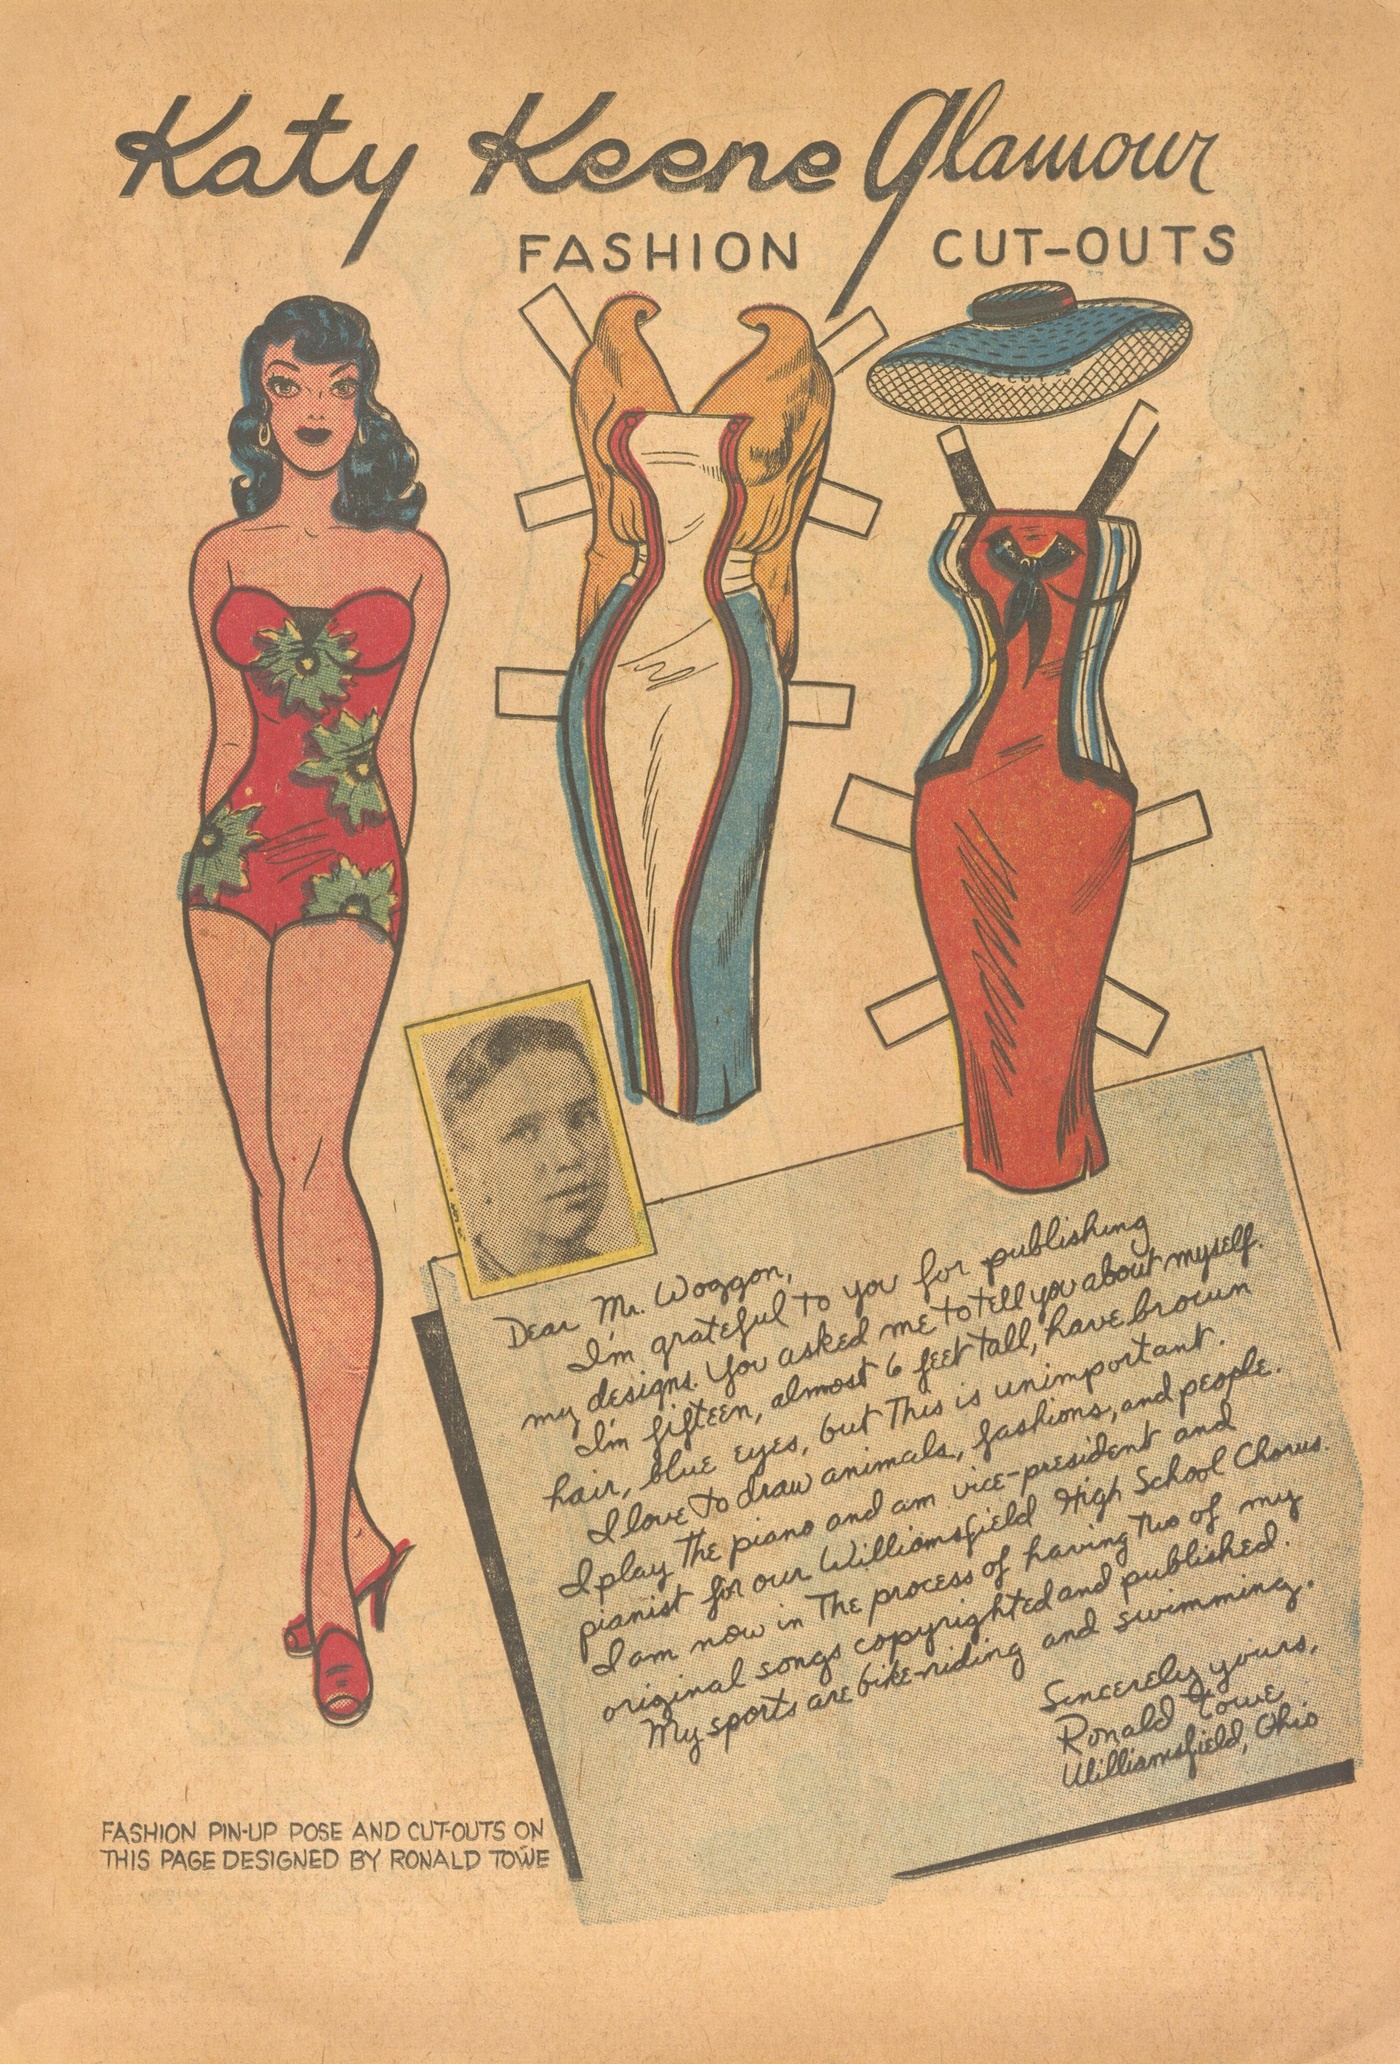 Katy Keene Glamour
FASHION CUT-OUTS
Dear Mr. Woggon,
I'm grateful to you for publishing
my designs. You asked me to tell you about myself.
I'm fifteen, almost 6 feet tall, have brown
hair, blue eyes, but this is unimportant.
I love to draw animals, fashions, and people.
I play the piano and am vice-president and
pianist for our Williamsfield High School Chorus.
I am now in the process of having two of my
original songs copyrighted and published.
My sports are bike-riding and swimming.
Sincerely yours,
Ronald Towe
Williamsfield, Ohio
FASHION PIN-UP POSE AND CUT-OUTS ON
THIS PAGE DESIGNED BY RONALD TOWE